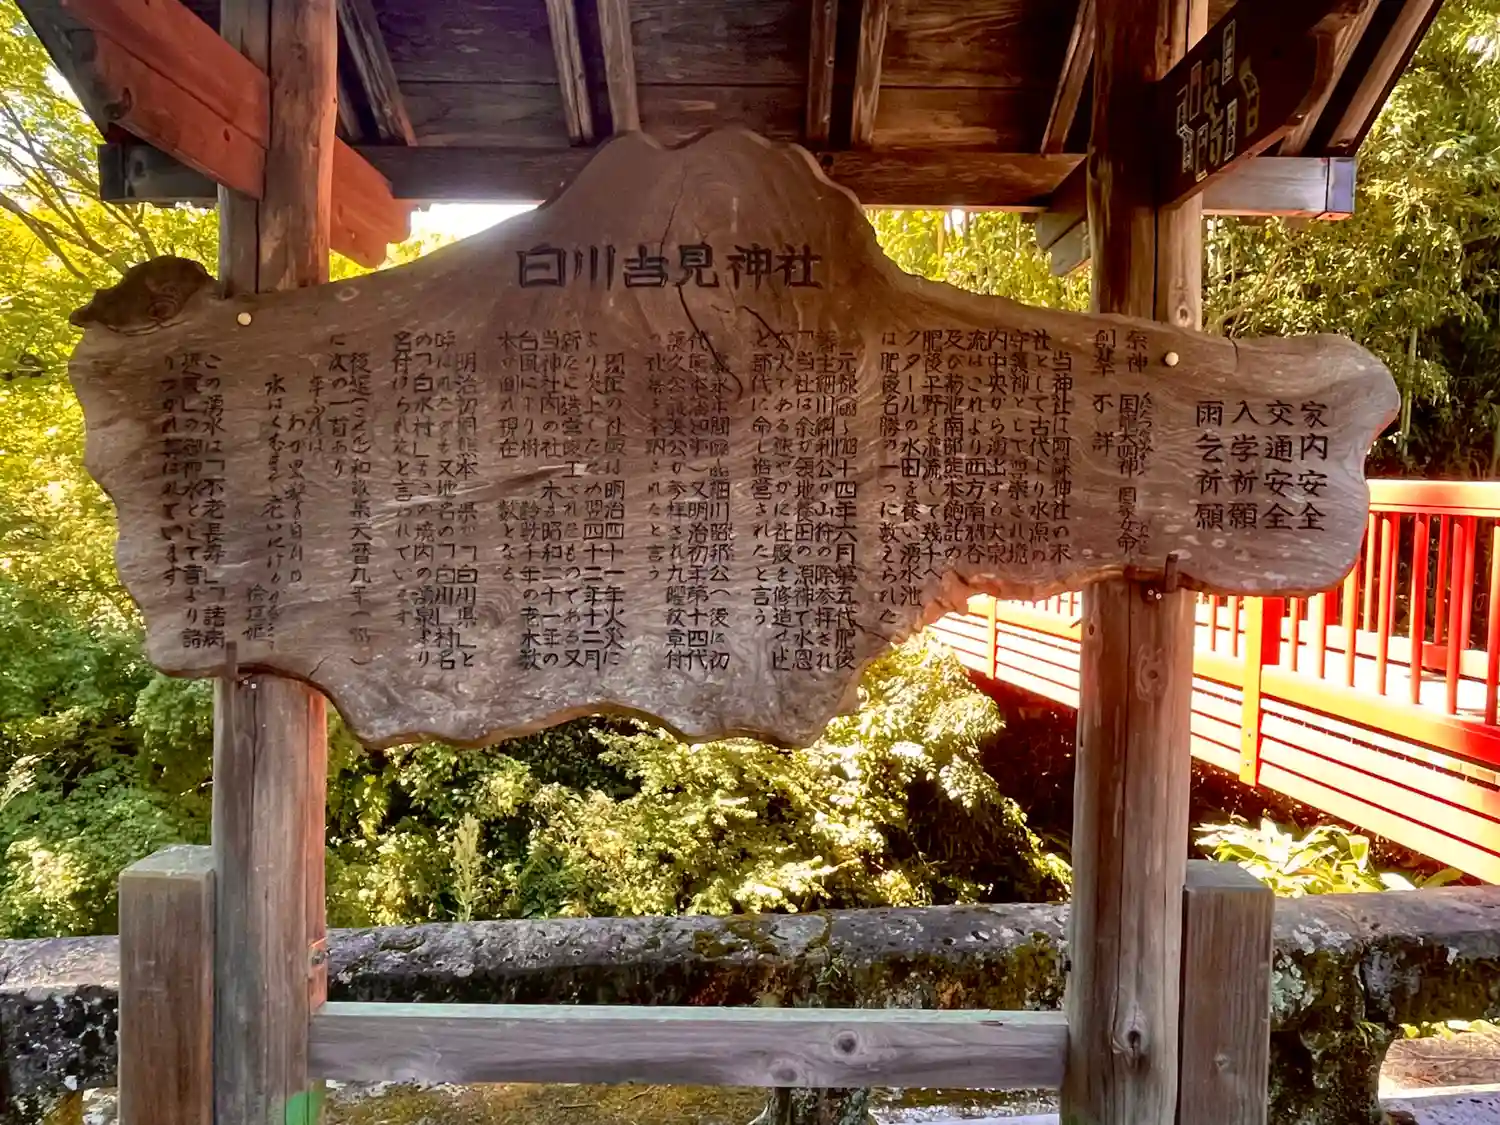 白川吉見神社
家内安全
交通安全
入学祈願
雨乞祈願
祭神 国龍大明神
創建 不詳
当神社は阿蘇神社の末
社として古代より水源の
守護神として崇され境
内中央から湧出する大泉
流はこれより四方南郷谷
及び菊池南部熊本飽託の
肥後平野を灌流して幾千ヘ
クタールの水田を養い湧水池
は肥後名勝の一つに数えられた
十四年六月第五代肥後
藩主細川綱利公が山狩の際参拝され
「当社は余が領地養田の源神で水恩
広大である速やかに社殿を修造せよ」
と郡代に命じ造営されたと言う
嘉永年間細川韶邦公(後に初
護久公護美公が参拝され九曜紋章付
の社号を奉納されたと言う
現在の社殿は明治四十一年火災に
より炎上したため翌四十二年十二月
新たに造営竣工されたものである又
当神社内の社木も昭和二十一年の
台風により樹齢数千年の老木数
本が倒れ現在数となる
明治初期熊本県が「白川県」と
呼ばれたのも又地名の「白川」村名
の「白水村」もこの境内の湧泉より
名付けられたと言われています
後撰和歌集
に次の一首あり
年ふれば
わが黒髪も白川の
水はくむまで老いにけるかな
檜垣嫗
この湧水は「不老長寿」「諸病
退散」の御神水として昔より語
りつがれ尊ばれています